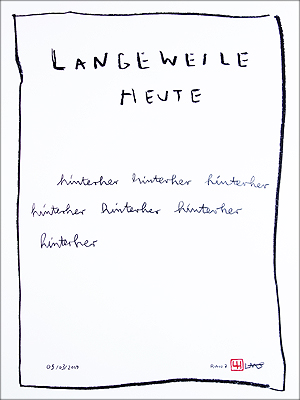 LANGEWEILE
HEUTE
hinterher hinterher hinterher
hinterher hinterher hinterher
hinterher